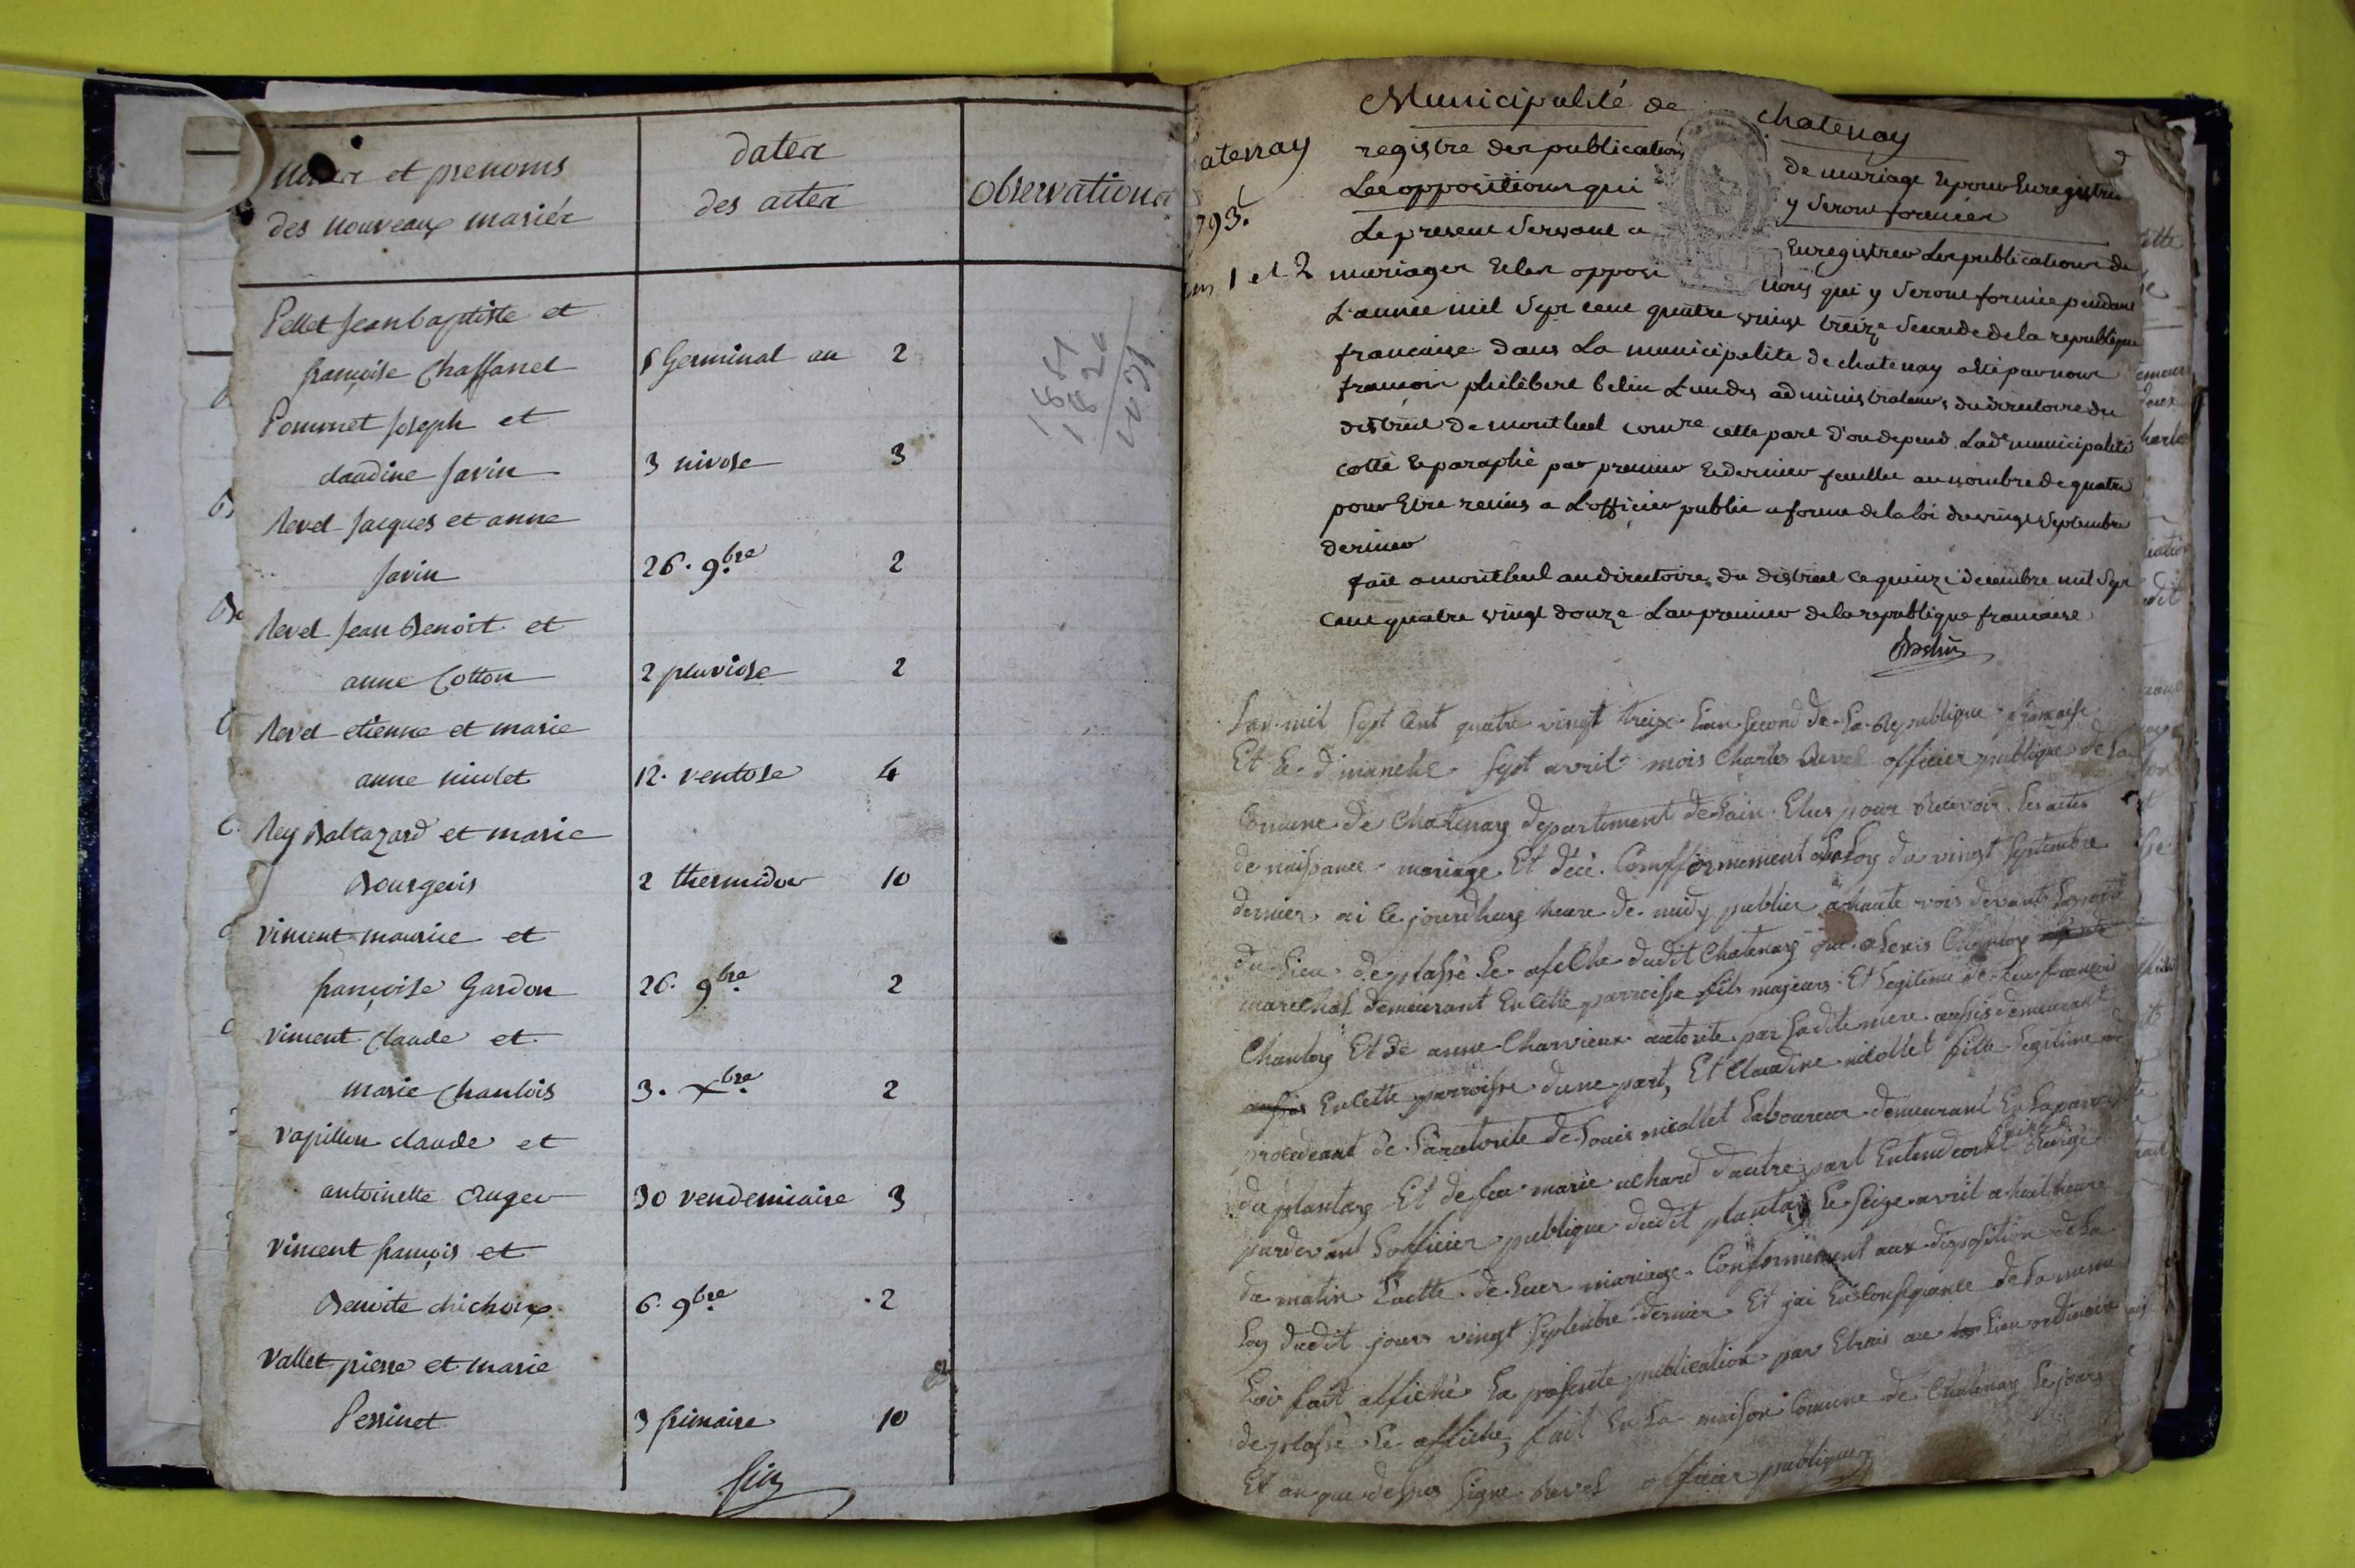 noms et prenoms
des nouveaux mariés
dates
des actes
observations
Pellet jean baptiste et
françoise Chaffanel
8 Germinal an 2
Pommet joseph et
claudine javin
3 nivose 3
Revel jacques et anne
javin
26. 9bre 2
Revel jean Benoit et
anne Cotton
2 pluviose 2
Revel etienne et marie
anne niulet
12. ventose 4
Rey Baltazard et marie
Bourgeois
2 thermidor 10
vincent maurice et
françoise Gardon
26. 9bre 2
vincent Claude et
marie Chanlois
3. Xbre 2
vapillon claude et
antoinette Auger
30 vendemiaire 3
vincent françois et
Benoite chichoux
6. 9bre 2
vallet pierre et marie
Perrinet
3 frimaire 10
fin
atenay
793.
1 et 2
Municipalité de chatenay
registre des publications de mariage et pour Enregistrer
Les oppositions qui y seront formées
Le present servant a Enregistrer Les publications de
mariages et les opposi tions qui y seront formée pendant
L'année mil sept cent quatre vingt treize seconde de la republique
francaise dans La municipalite de chatenay a été par nous
francois philibert belin L'un des administrateurs du directoire du
district de montluel comre cette part d'ou depend Lade municipalité
cotté et paraphé par premier et dernier feuillet au nombre de quatre
pour Etre remis a L'officier public a forme de la loi du vingt septembre
dernier
fait a montluel au directoire du district ce quinze decembre mil sept
cent quatre vingt douze L'an premier de la republique francaise
Belin
L'an mil sept cent quatre vingt treize L'an second de La Republique francaise
Et le dimanche sept avril mois Charles Revel officier publique de La
Comune de Chatenay departement de Lain Elus pour Recevoir Les actes
de naissance mariage Et décé. Confformement a La Loy du vingt septembre
dernier ai ce jourdhuy heure de midy publier a haute voix devant La porte
du Lieu de plassé Le afiche dudit Chatenay que alexis Chanloy
marechal demeurant En cette parroisse fils majeurs Et Legitime de feu françois
Chanloy Et de anne Charvieux autorité par Ladite mere aussis demeurant
En cette parroisse dune part, Et Claudine nicollet fille Legitime
procedeant de Lautorité de Louis nicollet Laboureur demeurant En La parroisse
du plantay Et de feu marie achard dautre part Entendeont faire Redigé
pardevant Lofficier publique dudit plantay Le seize avril a huit heure
du matin Lactte de Leur mariage Conformement aux disposition de La
Loy dudit jours vingt septembre dernier Et jai En Consequance de La meme
Loix fait affiché La presente publication par Etrais au Lieu ordinaire
de plassé Le affiche, fait En La maison Comune de Chatenay Le jours
Et an que dessus signe Revel officier publique